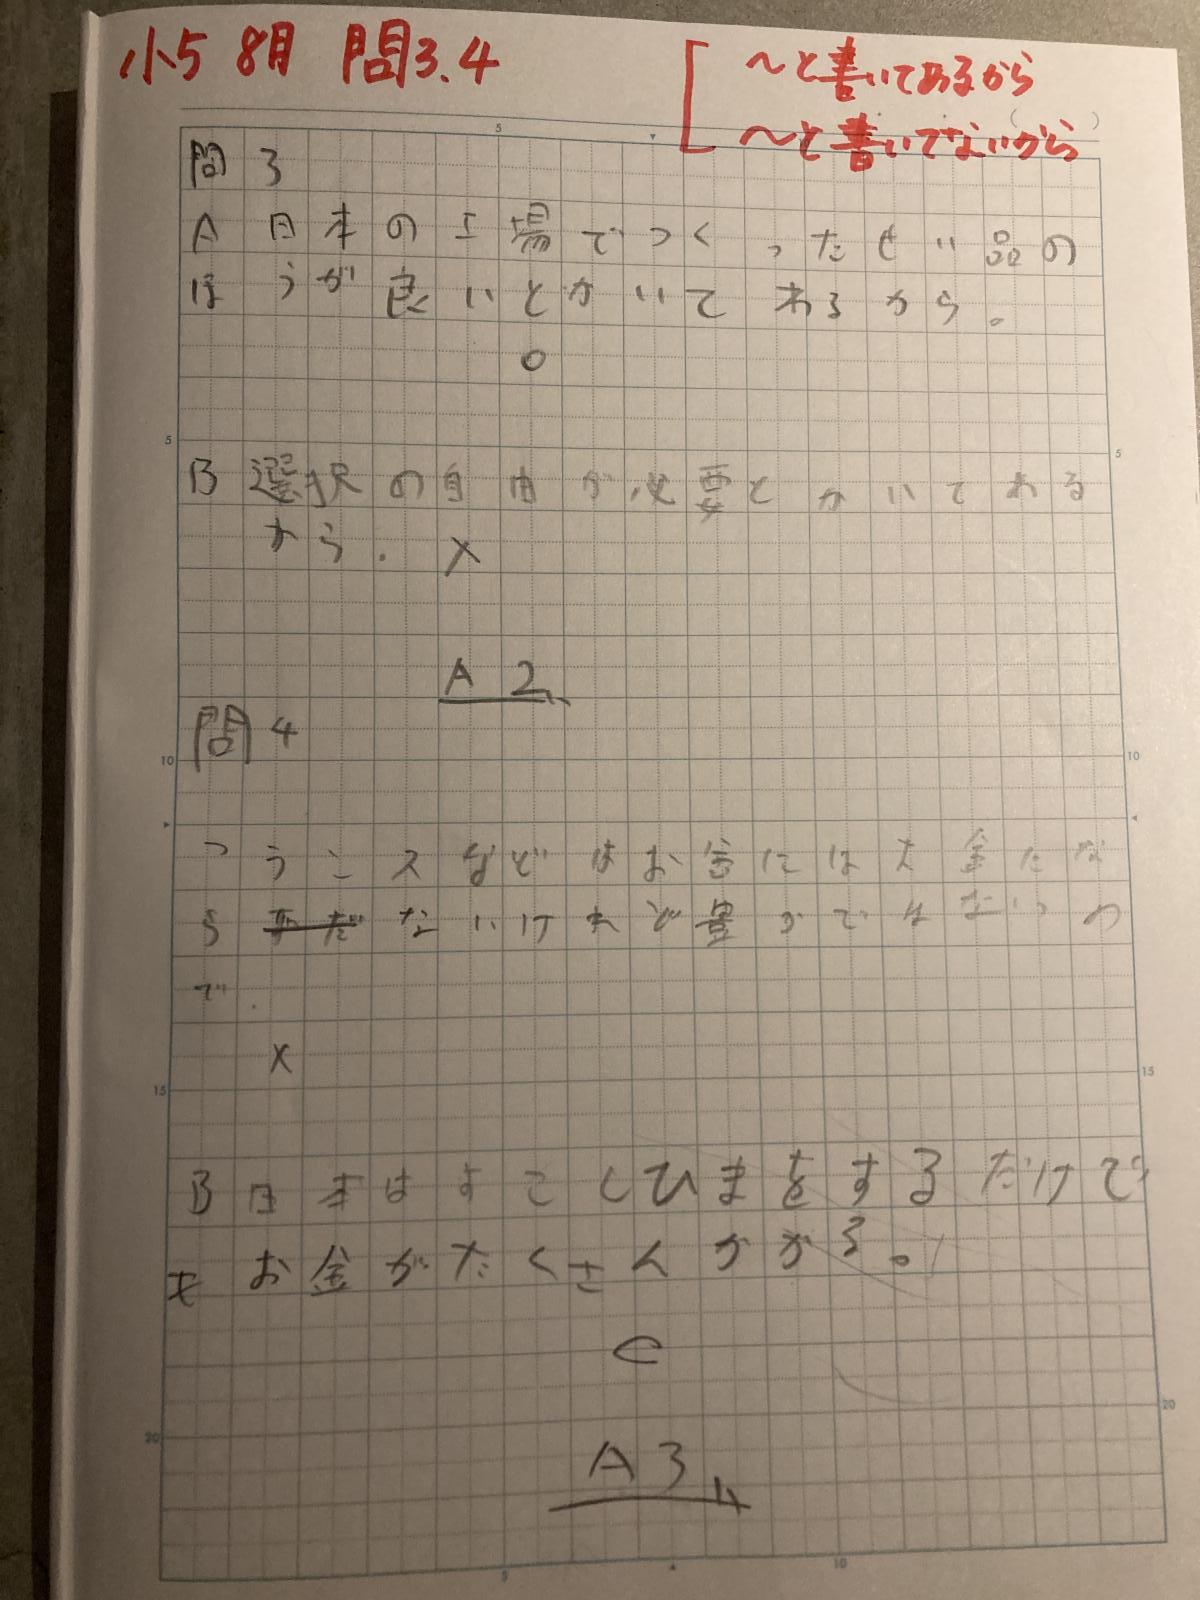 小5 8月 問3.4
〜と書いてあるから
〜と書いてないから
問3
A 日本の工場でつくったせい品の
ほうが良いとかいてあるから。
○
B 選択の自由が必要とかいてある
から. ×
A 2
問4
などはお金には大金だな
らないけれど豊かではないの
で.
×
B 日本はよこしひまをするだけで
もお金がたくさんかがる。
A 3
5
5
5
10
10
15
15
20
20
5
10